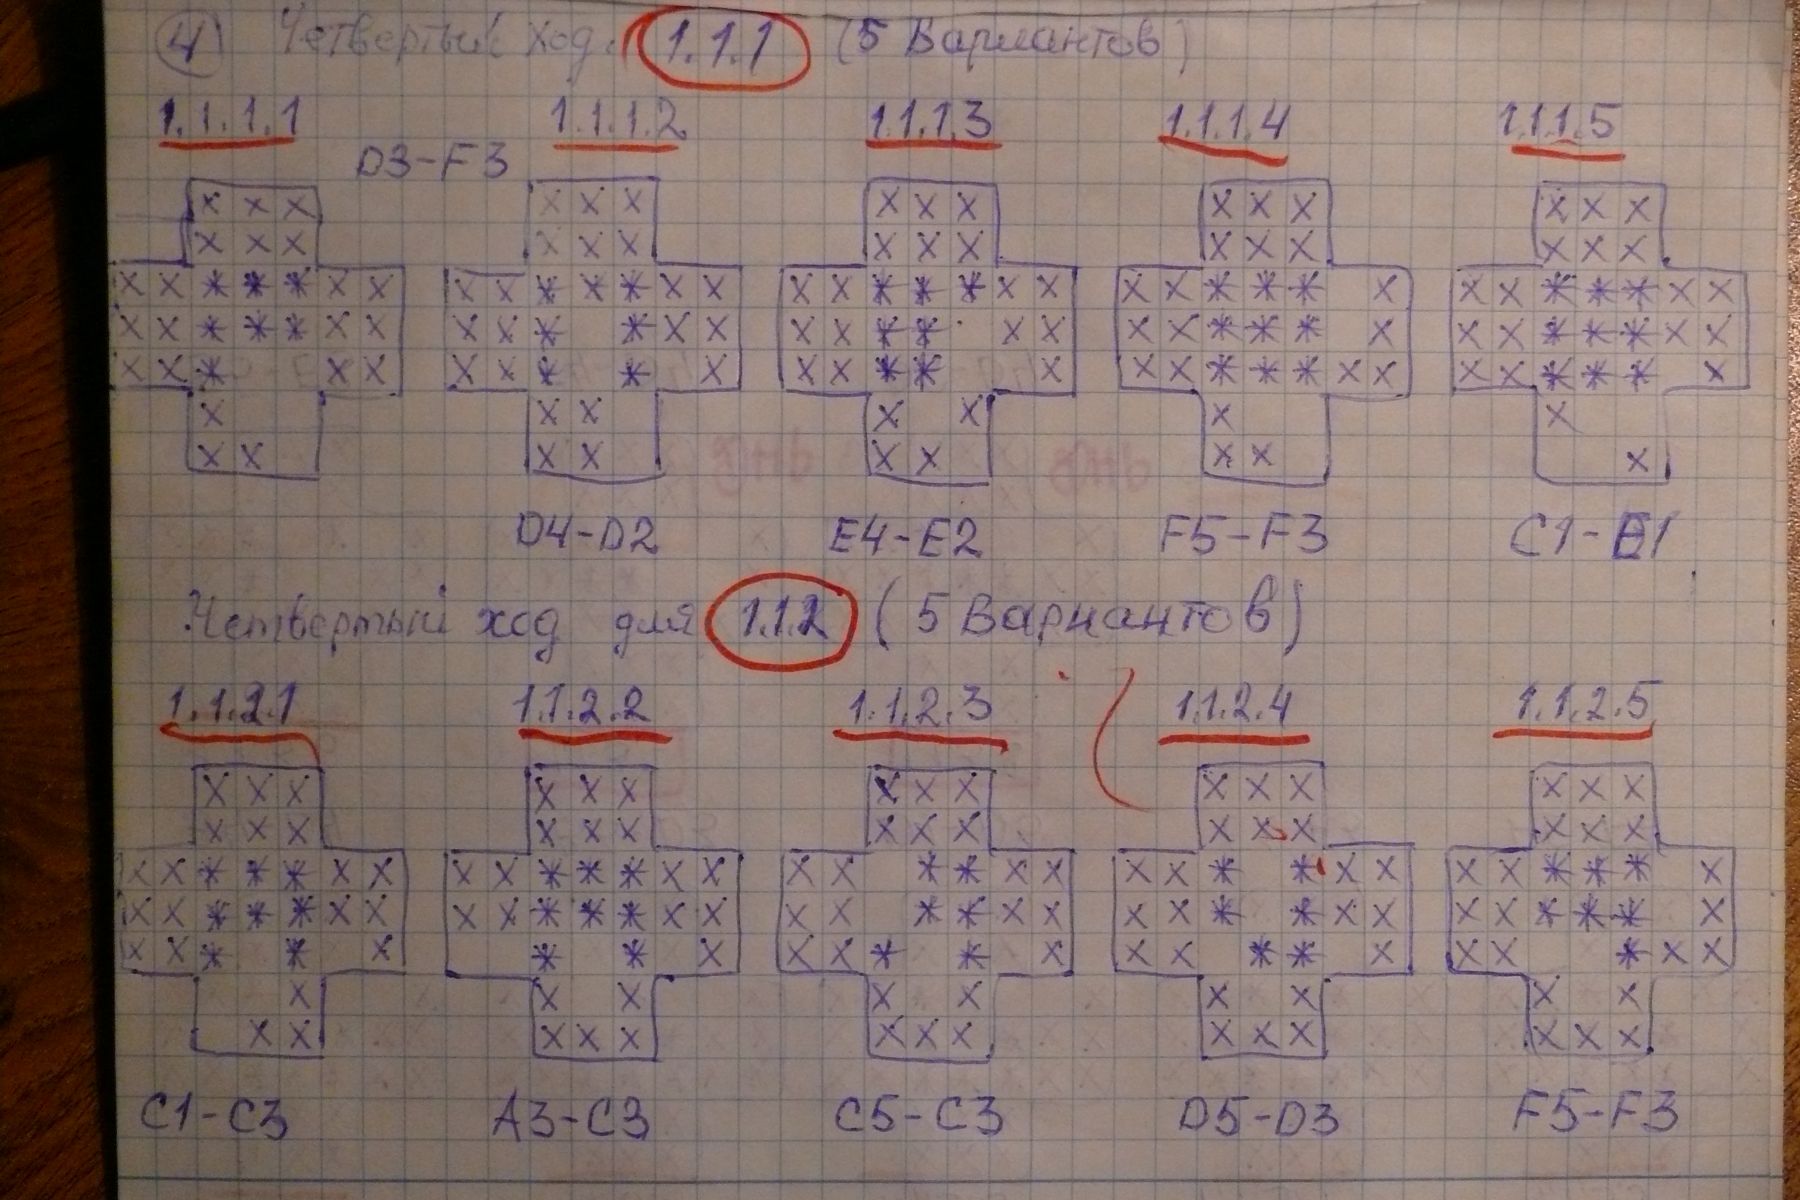 4 Четвертый ход. 1.1.1 (5 Вариантов)
1.1.1.1 1.1.1.2 1.1.1.3 1.1.1.4 1.1.1.5
D3-F3
D4-D2 E4-E2 F5-F3 C1-E1
Четвертый ход для 1.1.2 (5 Вариантов)
1.1.2.1 1.1.2.2 1.1.2.3 1.1.2.4 1.1.2.5
C1-C3 A3-C3 C5-C3 D5-D3 F5-F3